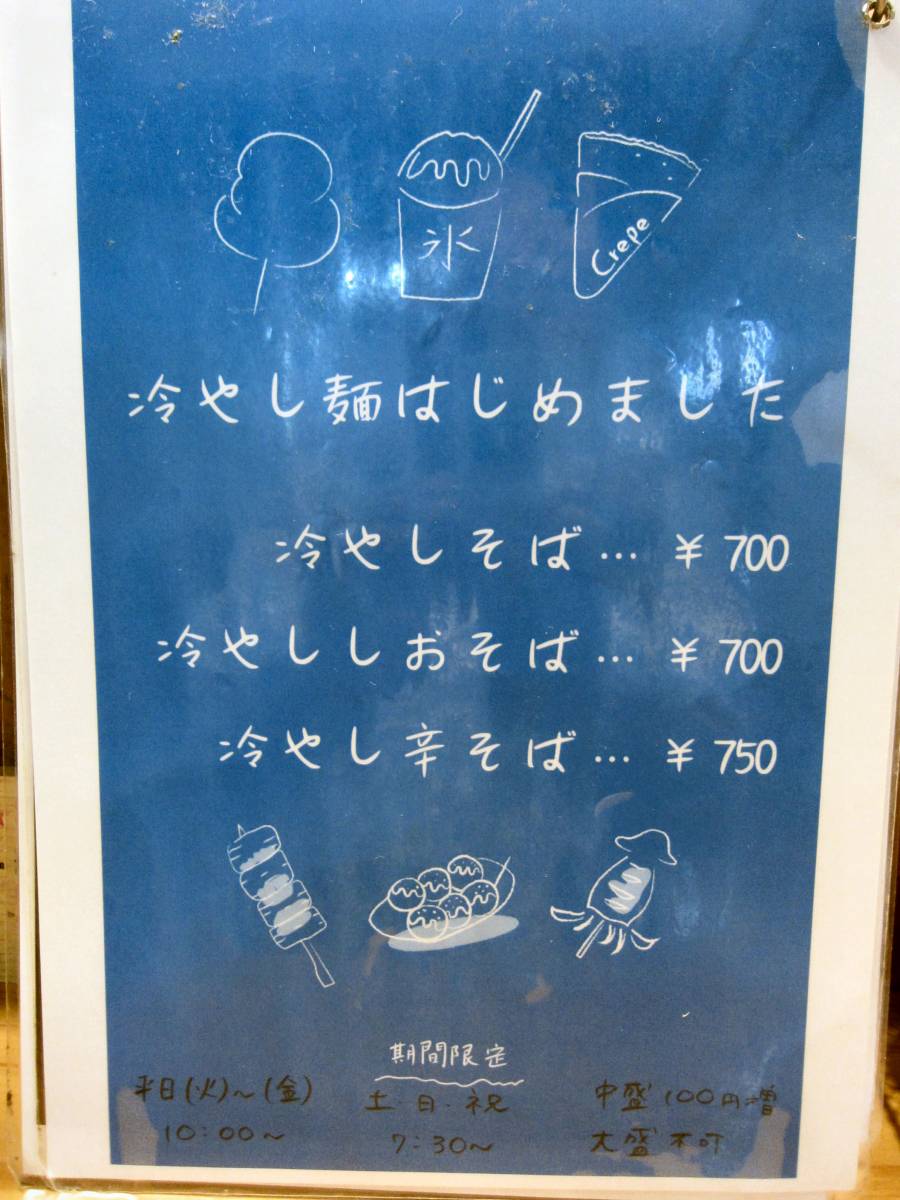 氷
Crepe
冷やし麺はじめました
冷やしそば… ¥700
冷やししおそば… ¥700
冷やし辛そば… ¥750
期間限定
平日(火)~(金)
10:00~
土・日・祝
7:30~
中盛 100円増
大盛不可